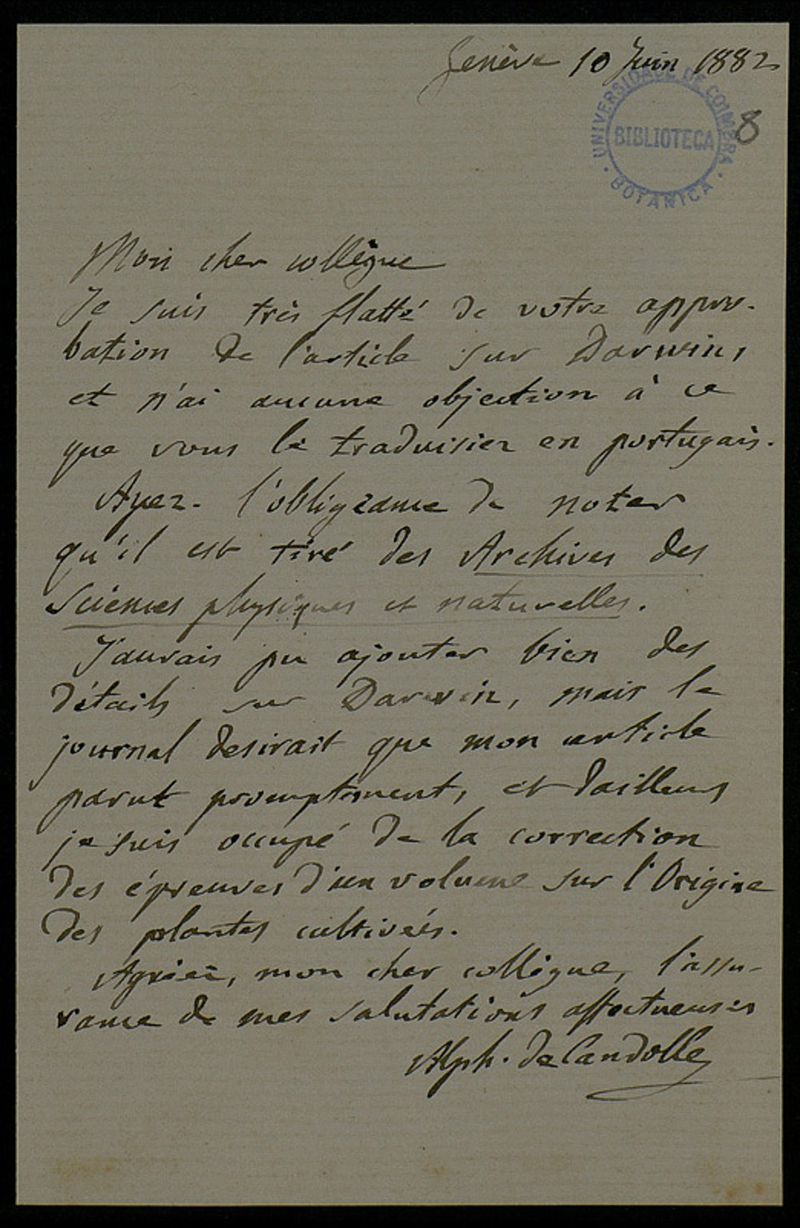 Genève 10 Juin 1882
UNIVERSIDADE DE COIMBRA
BIBLIOTECA
BOTANICA
8
Mon cher collègue
Je suis très flatté de votre appro-
bation de l'article sur Darwin,
et n'ai aucune objection à ce
que vous le traduisiez en portugais.
Ayez l'obligeance de noter
qu'il est tiré des Archives des
Sciences physiques et naturelles.
J'aurais pu ajouter bien des
détails sur Darwin, mais le
journal desirait que mon article
parut promptement, et d'ailleurs
je suis occupé de la correction
des épreuves d'un volume sur l'Origine
des plantes cultivées.
Agréez, mon cher collègue, l'assu-
rance de mes salutations affectueuses
Alph. de Candolle